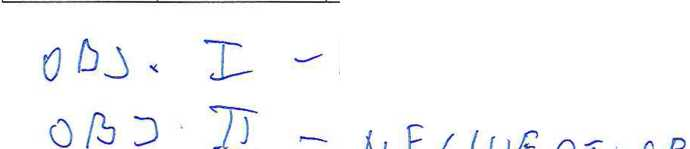 OBJ. I -
OBJ. II -